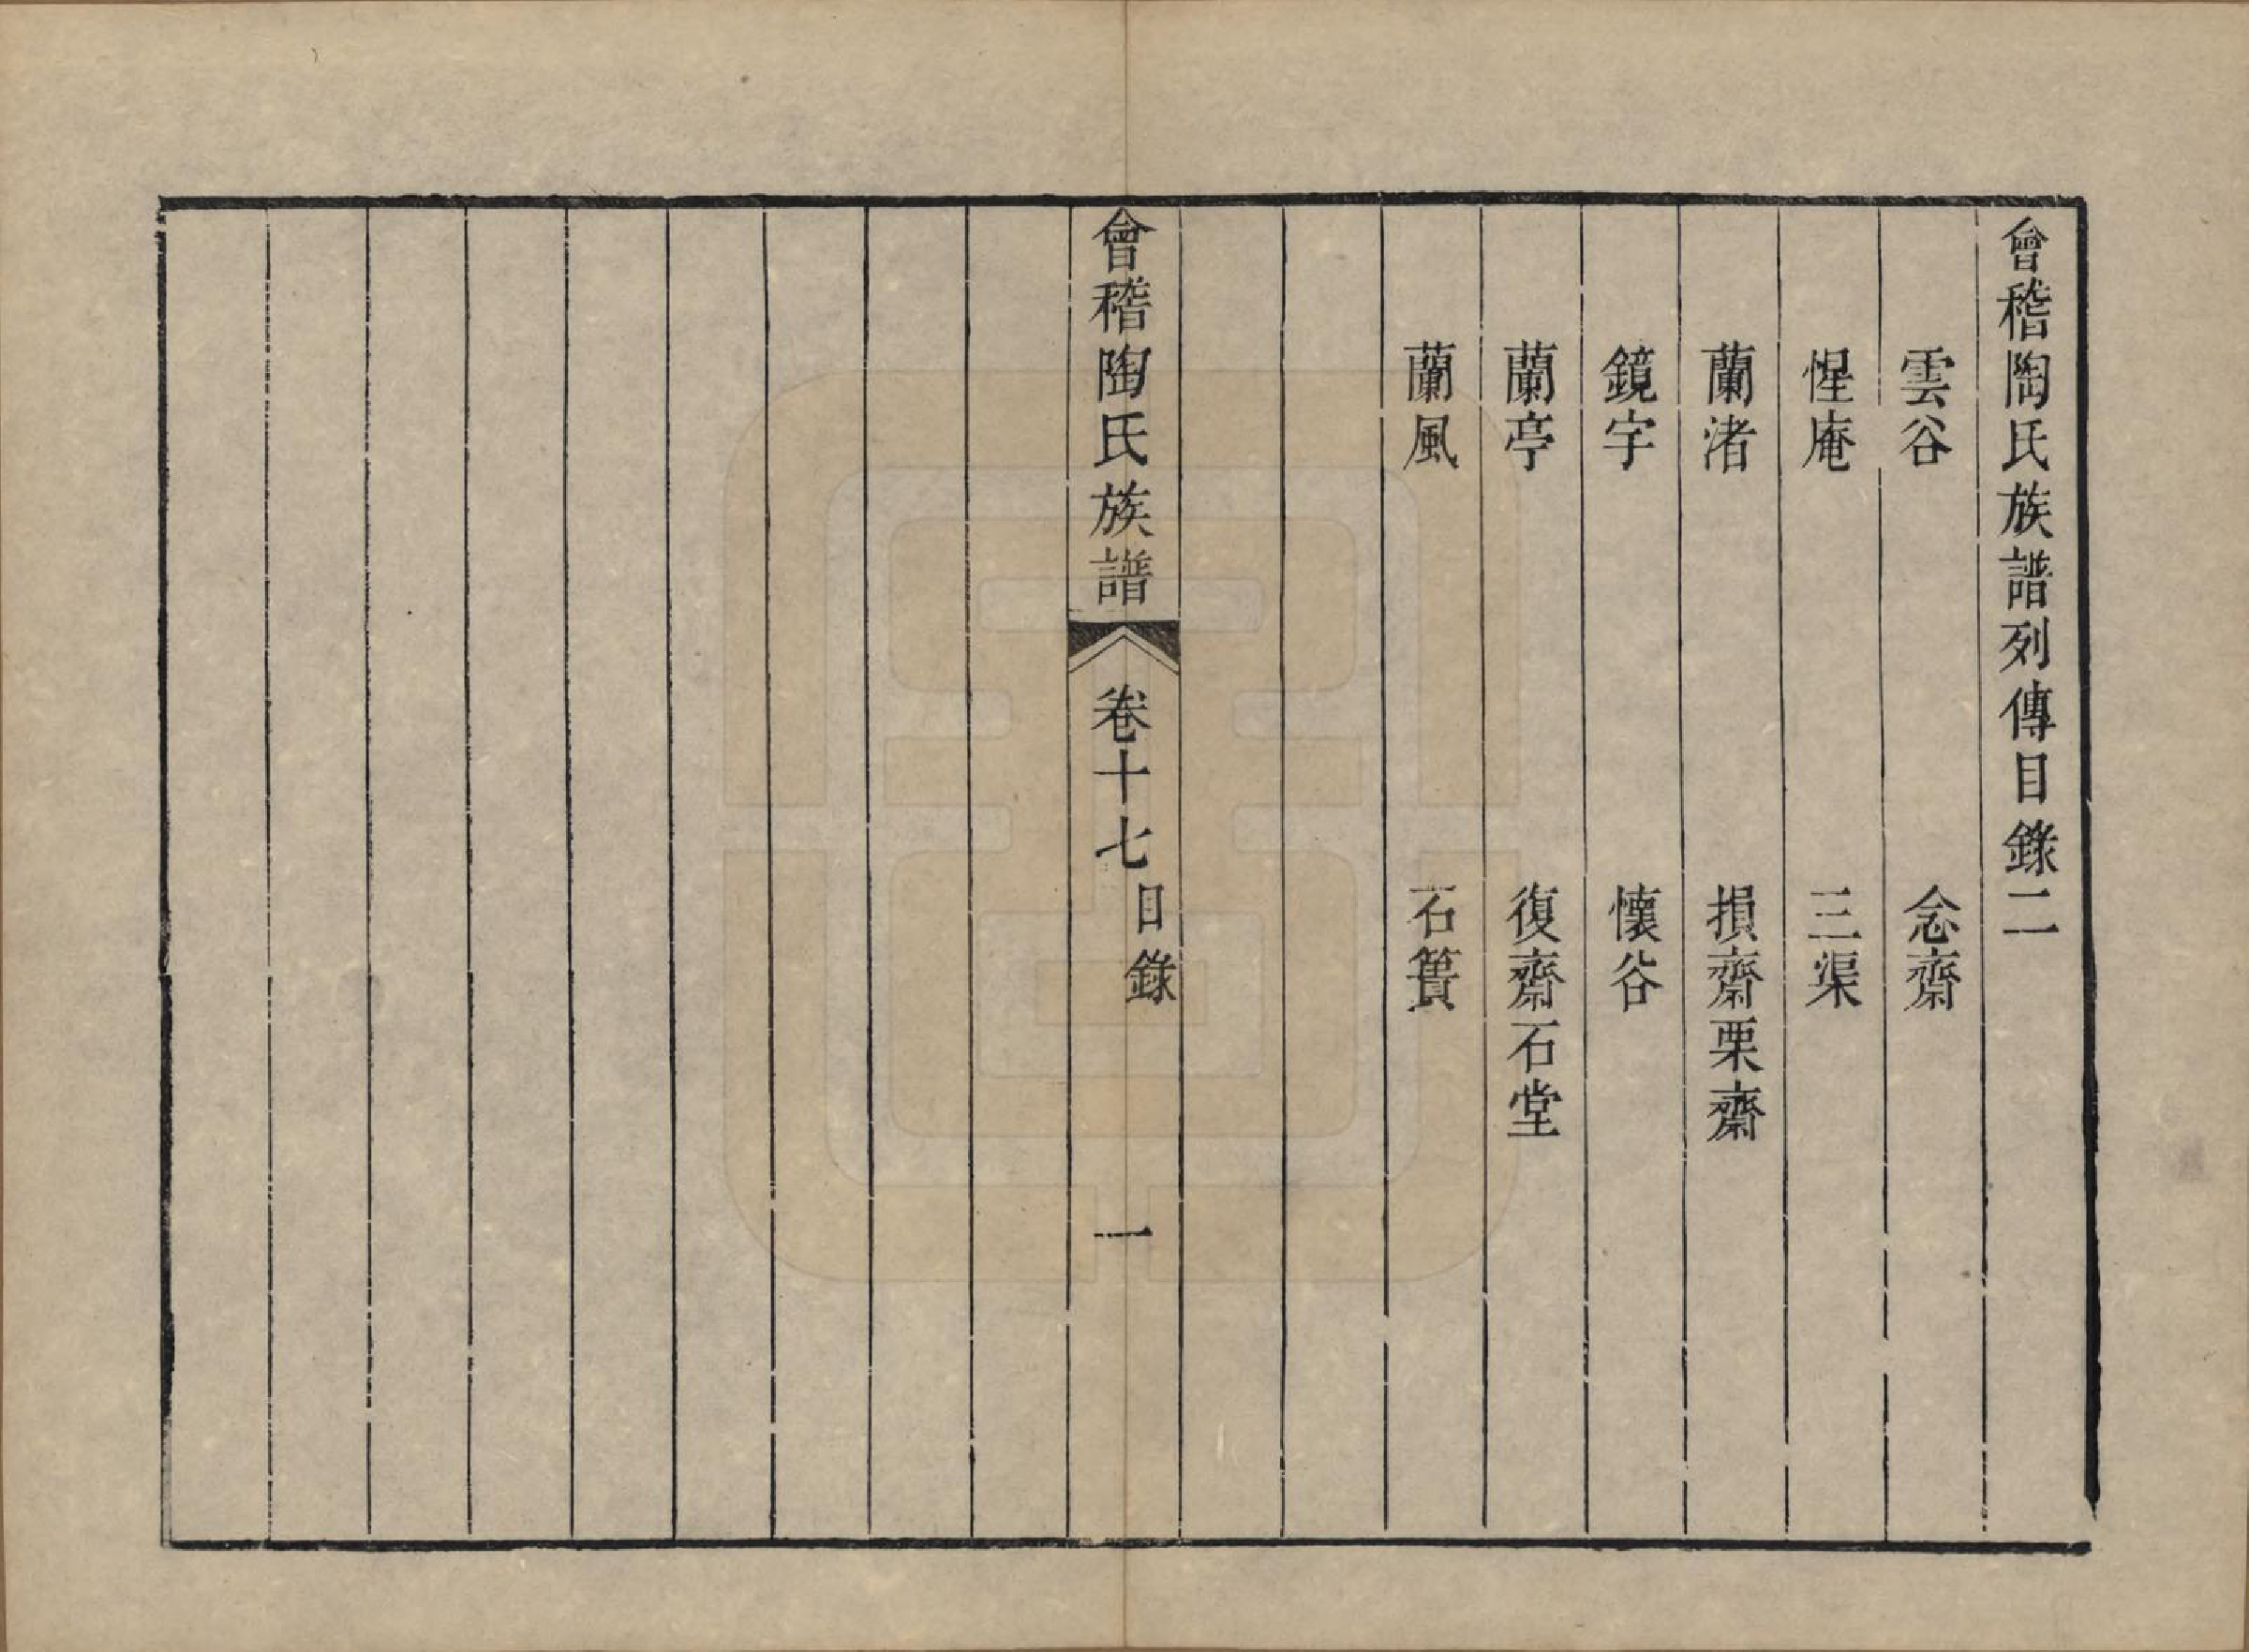 會稽陶氏族譜列傳目錄二
雲谷　念齋
惺庵　三渠
蘭渚　損齋栗齋
鏡宇　懷谷
蘭亭　復齋石堂
蘭風　石簣
會稽陶氏族譜　卷十七　目錄　一